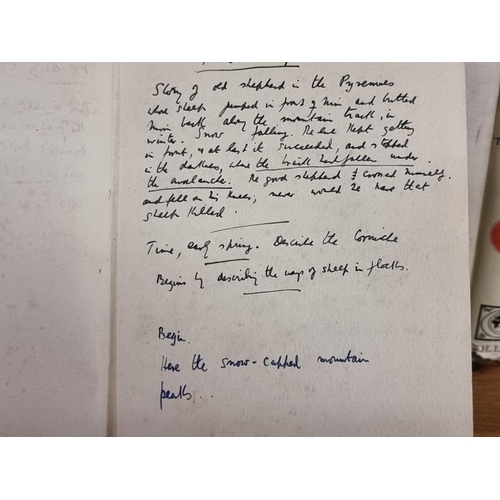 Story of old shepherd in the Pyrenees
whose sheep jumped in front of him and butted
him back along the mountain track, in
winter. Snow falling. He kept getting
in front, & at last it succeeded, and stopped
in the darkness, where the track had fallen under
the avalanche. The good shepherd crossed himself.
and fell on his knees; never would he have that
sheep killed.
Time, early spring. Describe the Corniche
Begins by describing the ways of sheep in flocks.
Begin.
Here the snow-capped mountain
peaks...